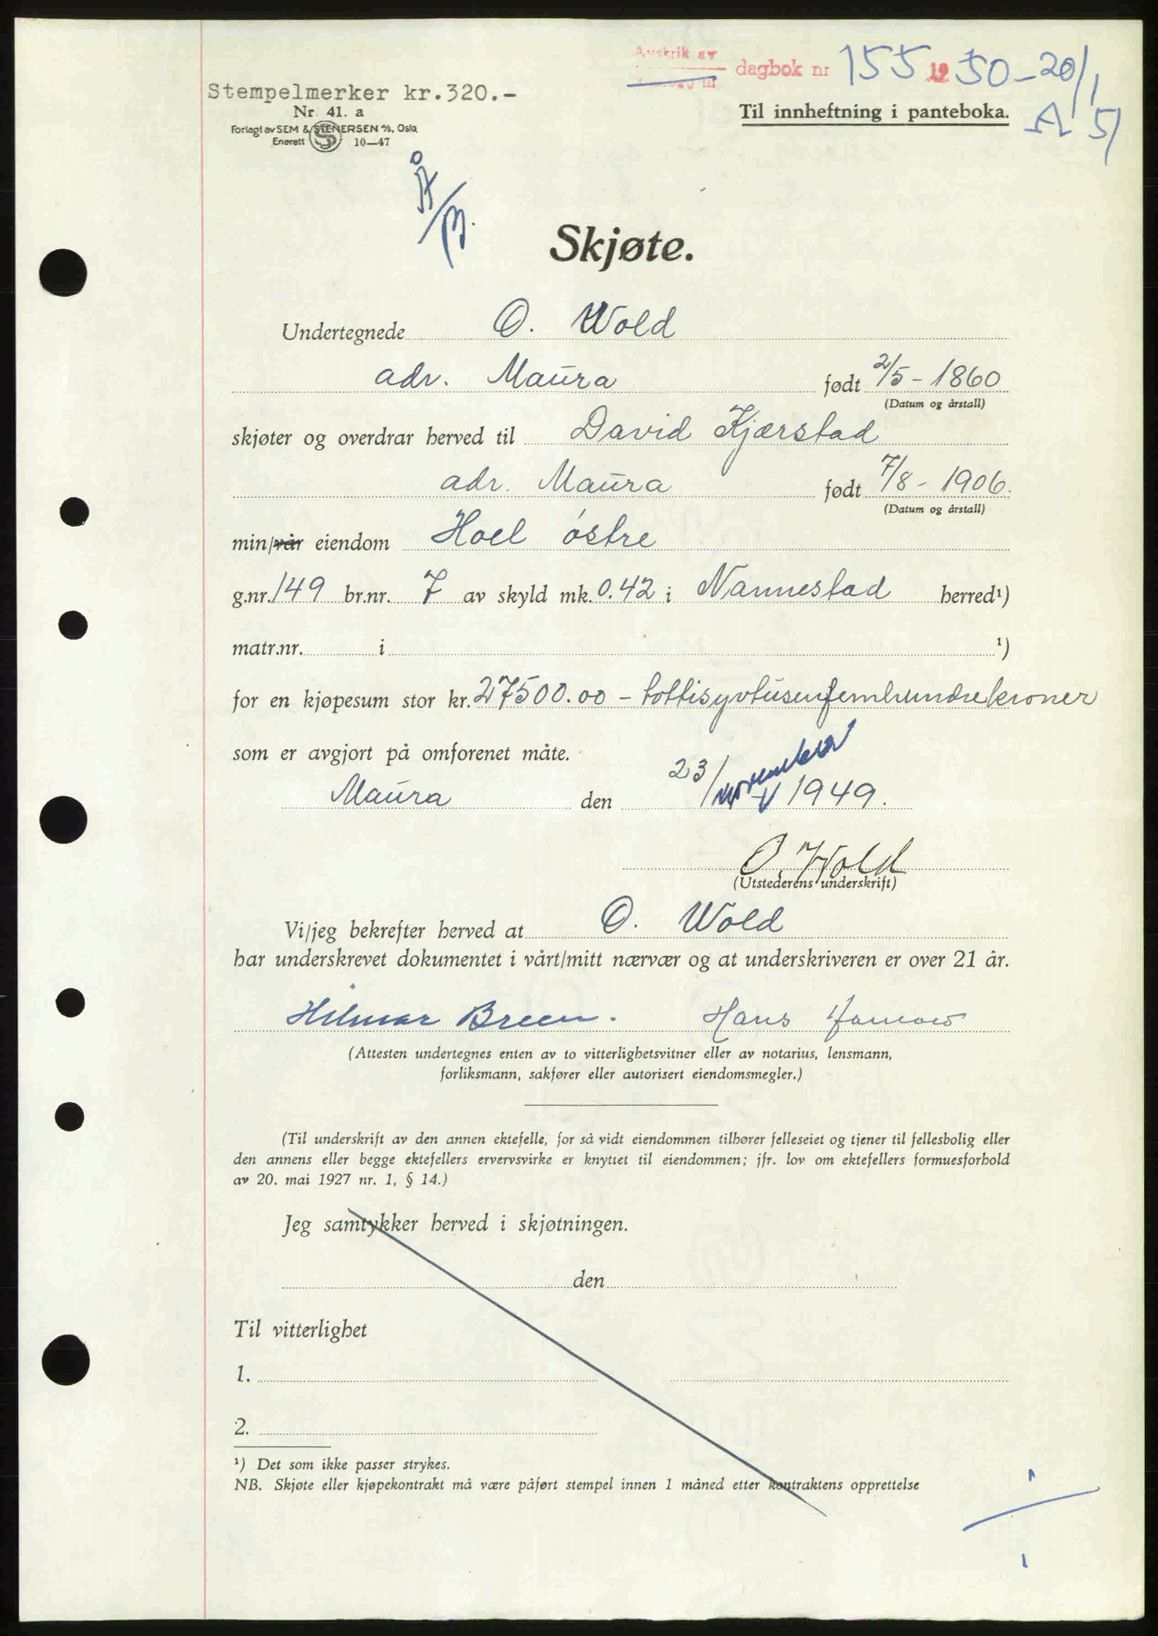 Avskrik av
dagbok nr 155 1950-20/1
A 5/
Stempelmerker kr.320.-
Nr. 41. a
Forlagt av SEM & STENERSEN A/S, Oslo
Enerett 10—47
Til innheftning i panteboka.
Skjøte.
Undertegnede O. Wold
adr. Maura født 2/5 - 1860
(Datum og årstall)
skjøter og overdrar herved til David Kjærstad
adr. Maura født 7/8 - 1906.
(Datum og årstall)
min/vår eiendom Hoel østre
g.nr. 149 br.nr. 7 av skyld mk. 0.42 i Nannestad herred¹)
matr.nr. i ¹)
for en kjøpesum stor kr. 27500.00 - tottisyvtusenfemhundrekroner
som er avgjort på omforenet måte.
Maura den 23/ november 1949.
O. Wold
(Utstederens underskrift)
Vi/jeg bekrefter herved at O. Wold
har underskrevet dokumentet i vårt/mitt nærvær og at underskriveren er over 21 år.
Hilmar Breen. Hans
(Attesten undertegnes enten av to vitterlighetsvitner eller av notarius, lensmann,
forliksmann, sakfører eller autorisert eiendomsmegler.)
(Til underskrift av den annen ektefelle, for så vidt eiendommen tilhører felleseiet og tjener til fellesbolig eller
den annens eller begge ektefellers ervervsvirke er knyttet til eiendommen; jfr. lov om ektefellers formuesforhold
av 20. mai 1927 nr. 1, § 14.)
Jeg samtykker herved i skjøtningen.
den
Til vitterlighet
1.
2.
¹) Det som ikke passer strykes.
NB. Skjøte eller kjøpekontrakt må være påført stempel innen 1 måned etter kontraktens opprettelse